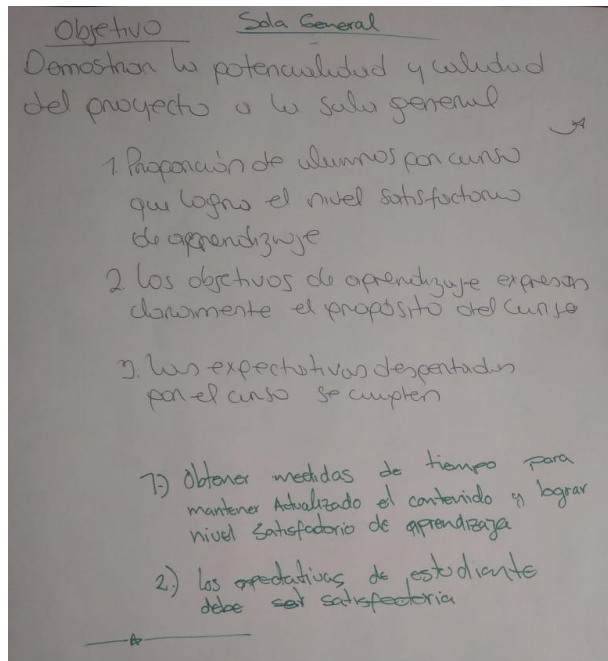 Objetivo Sala General
Demostrar la potencialidad y calidad
del proyecto a la sala general
1. Proporción de alumnos por curso
que logro el nivel satisfactorio
de aprendizaje
2 Los objetivos de aprendizaje expresan
claramente el propósito del curso
3. Las expectativas despertadas
por el curso se cumplen
1.) Obtener medidas de tiempo para
mantener Actualizado el contenido y lograr
nivel satisfactorio de aprendizaja
2.) Los expectativas de estudiante
debe ser satisfectoria